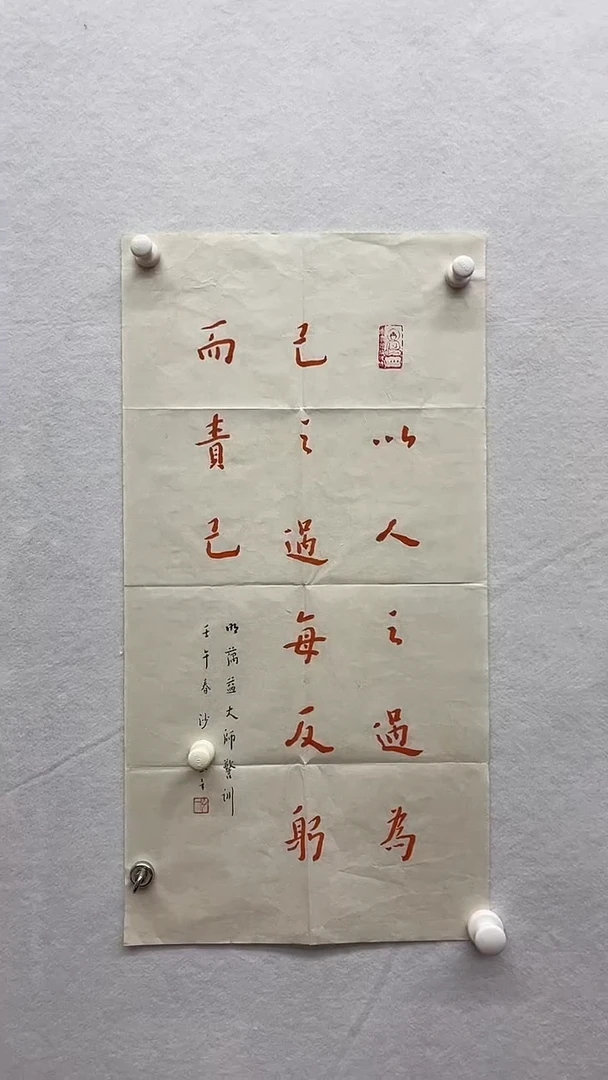 以人之過為
己之過每反躬
而責己
明蕅益大師警訓
壬午春沙